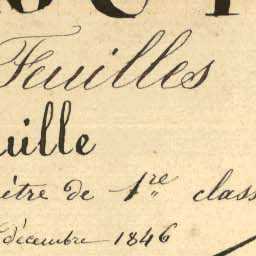 Feuilles
uille
ètre de 1re class
décembre 1846